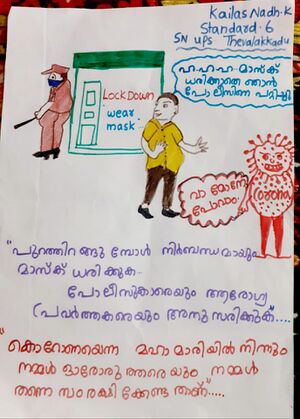 Kailas Nadh.K
Standard.6
SN UPS Thevalakkadu
ഹ.ഹ.ഹ.മാസ്ക്
ധരിക്കാതെ ഞാൻ
പോലീസിനെ പറ്റിച്ചു
Lockdown
wear
mask.
വാ മോനേ
പോവാം
corona
"പുറത്തിറങ്ങുമ്പോൾ നിർബന്ധമായും
മാസ്ക് ധരിക്കുക-
പോലീസുകാരെയും ആരോഗ്യ
പ്രവർത്തകരെയും അനുസരിക്കുക്....
"കൊറോണയെന്ന മഹാമാരിയിൽ നിന്നും
നമ്മൾ ഓരോരുത്തരെയും നമ്മൾ
തന്നെ സംരക്ഷിക്കേണ്ടതാണ്.....